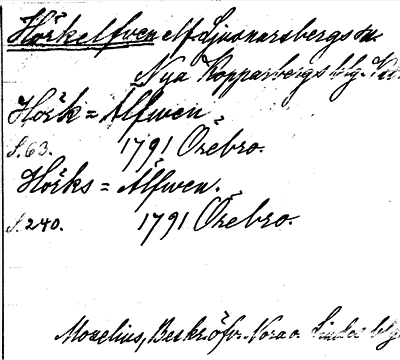 Hörkelfven elf. Ljusnarsbergs sn.
Nya Kopparbergs blg.
Hörk = Älfwen
S. 63. 1791 Örebro.
Hörks = Älfwen.
S. 240. 1791 Örebro.
Moxelius, Beskr. öfv. Nora o. Lindes blg